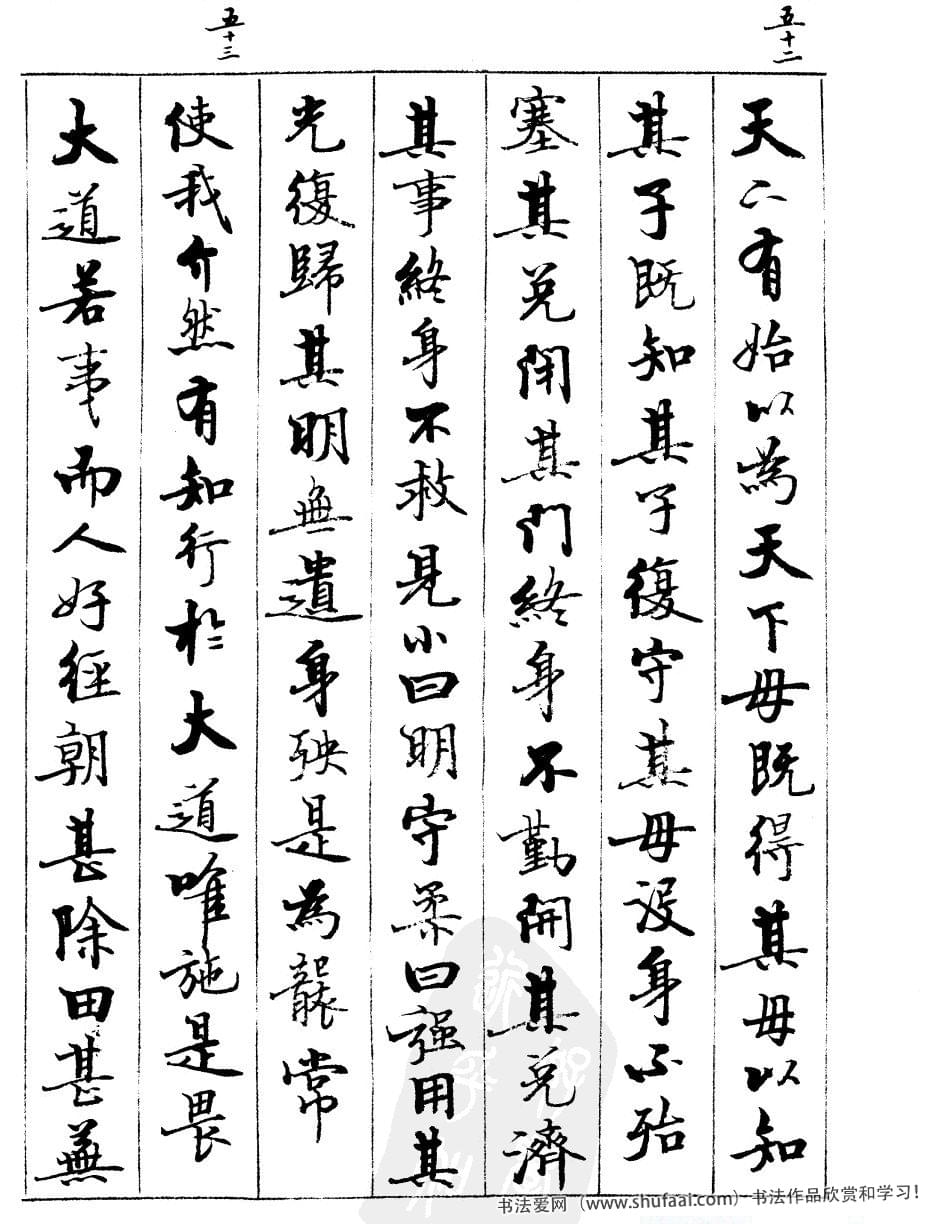 五十二
天下有始以為天下母既得其母以知
其子既知其子復守其母没身不殆
塞其兑閉其門終身不勤開其兑濟
其事終身不救見小曰明守柔曰强用其
光復歸其明無遺身殃是為襲常
五十三
使我介然有知行於大道唯施是畏
大道若夷而人好徑朝甚除田甚蕪
书法爱网（www.shufaai.com）书法作品欣赏和学习！